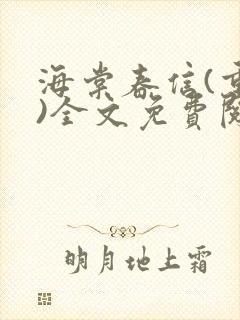 海棠春信(重
)全文免費閱
明月地上霜